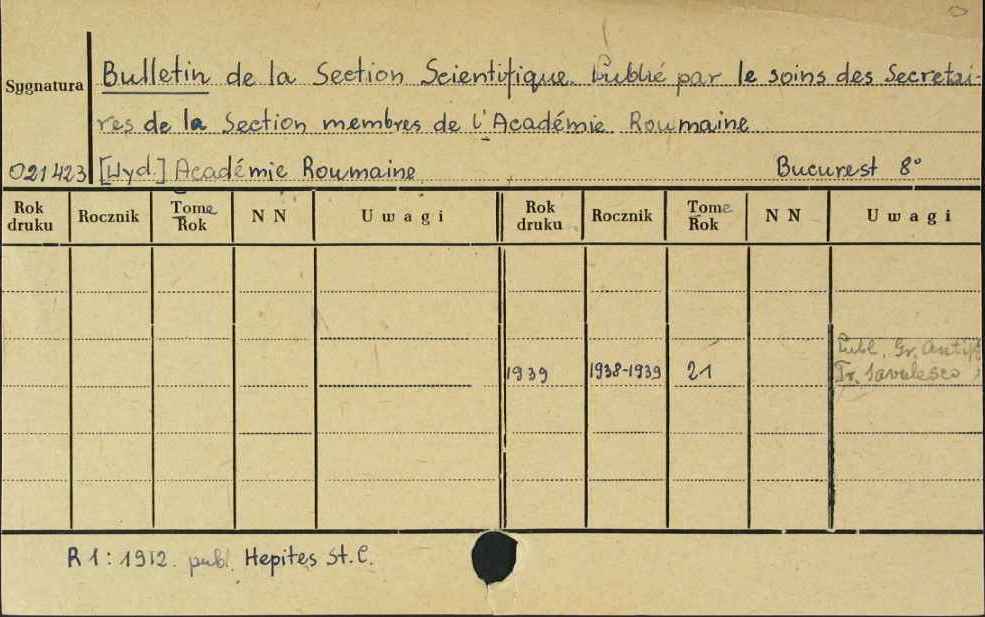 Sygnatura
Bulletin de la Section Scientifique. Publié par le soins des Secretai-
res de la Section membres de l'Académie Roumaine
021423 [Wyd.] Académie Roumaine Bucurest 8°
Rok druku Rocznik Tome Rok N N Uwagi Rok druku Rocznik Tome Rok N N Uwagi
Publ. Gr. Antip
1939 1938-1939 21 Tr. Savulesco
R 1: 1912. publ. Hepites St. C.